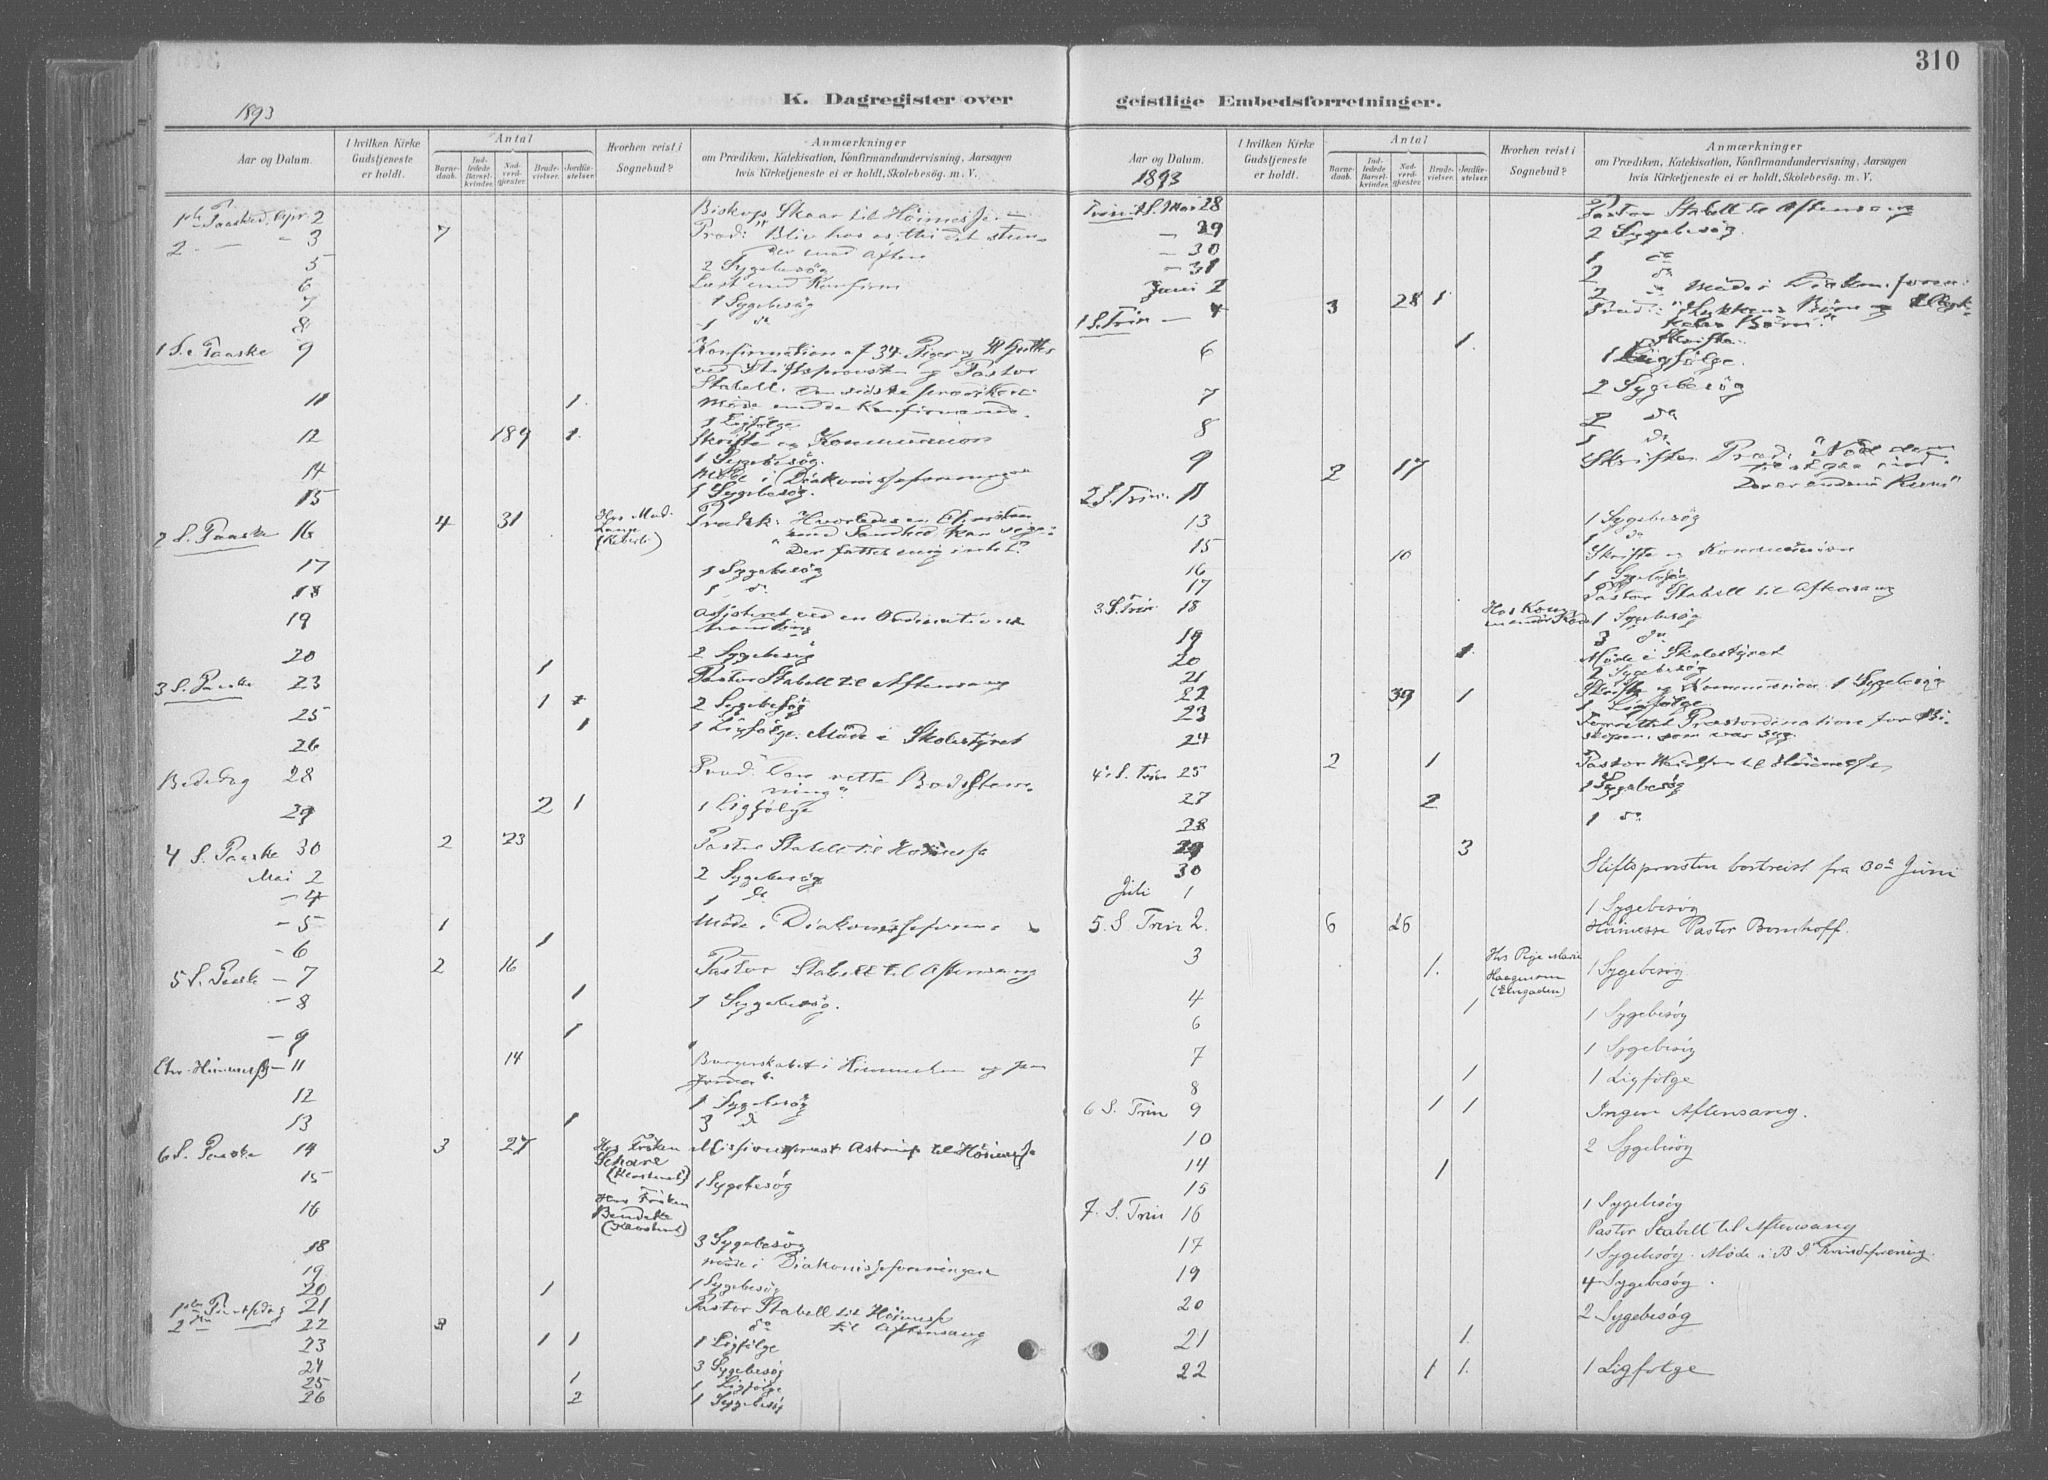 310
K. Dagregister over
geistlige Embedsforretninger.
1893
Aar og Datum.
I hvilken Kirke Gudstjeneste er holdt.
Antal
Barnedaab.
Indledede Barselkvinder.
Nadverdgjester.
Brudevielser.
Jordfæstelser.
Hvorhen reist i Sognebud?
Anmærkninger
om Prædiken, Katekisation, Konfirmandundervisning, Aarsagen
hvis Kirketjeneste ei er holdt, Skolebesøg. m. V.
1ste Paasked. Apr. 2 Biskop Skaar til Höimesse.
2 — " 3 7 Præd: "Bliv hos os, thi det stun-
der mod Aften
5 2 Sygebesög
6 Læst med Konfirm
7 1 Sygebesög
8 1 do
1 S. e Paaske 9 Konfirmation af 34 Piger og Gutter
ved Stiftsprovsten og Pastor
Stabell.
11 1. Möde med de Konfirmerede.
1 Ligfölge
12 189 1. Skrifte og Kommunion
1 Sygebesög.
14 Möde i Diakonisseforeningen
15 1 Sygebesög.
2 S. Paaske 16 4 31 Hos Mad. Lange Prædik: Hvorledes en Christen
med Sandhed kan sige:
"Der fattes mig intet."
17 1 Sygebesög
18 1 do
19 Assisteret ved en Ordinations-
handling
20 1 2 Sygebesög
3 S. Paaske 23 Pastor Stabell til Aftensang
25 1 2 Sygebesög
26 1 1 Ligfölge. Möde i Skolestyret
Bededag 28 Præd: Den rette Bodsstem-
ning".
29 2 1 1 Ligfölge
4 S. Paaske 30 2 23 Pastor Stabell til Höimesse
Mai 2 2 Sygebesög
— 4 1 do
— 5 1 Möde i Diakonisseforen.
— 6 1
5 S. Paaske — 7 2 16 Pastor Stabell til Aftensang
— 8 1 1 Sygebesög.
— 9 1
Chr. Himmelf — 11 14 "Borgerskabet i Himmelen og paa
Jorden"
12 1 Sygebesög
13 1 3 do
6 S. Paaske 14 3 27 Hos Fröken Missionsprest Astrup til Höimesse
15 1 Sygebesög
16 Hos Fröken
18 3 Sygebesög
19. Möde i Diakonisseforeningen
20 1 1 Sygebesög
1ste Pintsedag 21 Pastor Stabell til Höimesse
2den — 22 3 do til Aftensang
23 1 1 1 Ligfölge
24 3 Sygebesög
25 1 1 Ligfölge
26 2 1 Sygebesög
Aar og Datum.
1893
I hvilken Kirke Gudstjeneste er holdt.
Antal
Barnedaab.
Indledede Barselkvinder.
Nadverdgjester.
Brudevielser.
Jordfæstelser.
Hvorhen reist i Sognebud?
Anmærkninger
om Prædiken, Katekisation, Konfirmandundervisning, Aarsagen
hvis Kirketjeneste ei er holdt, Skolebesøg. m. V.
Trin. S. Mai 28 Pastor Stabell til Aftensang
— 29 2 Sygebesög.
— 30 1 do
— 31 2 do
Juni 2 2 do Möde i Diakon. foren:
1 S. Trin — 4 3 28 1 Præd: "Lykkens Börn og
Börn."
Skrifte.
6 1. 1 Ligfölge.
7 2 Sygebesög
8 2 do
9 1 do
2 17 Skrifte. Præd: "Nöd dem
til at gaa ind.
Der er endnu Rum"
2 S. Trin. 11
13 1 Sygebesög
15 1 do
10 Skrifte og Kommunion
16 1 Sygebesög
17 Pastor Stabell til Aftensang
3 S. Trin 18 1 Sygebesög
19 3 do
20 1. Möde i Skolestyret
21 2 Sygebesög
22 39 1 Skrifte og Kommunion. 1 Sygebesög
23 1 Ligfölge
24 Forrettet Præstordination for Bi-
skopen, som var syg.
4. S. Trin 25 2 1 Pastor til Höimesse
27 2 1 Sygebesög
28 1 do
29 3
30 Stiftsprovsten bortreist fra 30te Juni
Juli 1 1 Sygebesög
5. S. Trin 2. 6 26 Höimesse Pastor Bomhoff.
3 1. Hos Pige Marie Haagensen (Elvgaden) 1 Sygebesög
4 1 1 Sygebesög
6 1 Sygebesög
7 1 1 Ligfölge
8
6 S. Trin 9 1 1 Ingen Aftensang.
10 2 Sygebesög
14 1
15 1 Sygebesög
7. S. Trin 16 Pastor Stabell til Aftensang
17 1 Sygebesög. Möde i Kvindeforening.
19 4 Sygebesög.
20 2 Sygebesög
21 1.
22 1 1. 1 Ligfölge